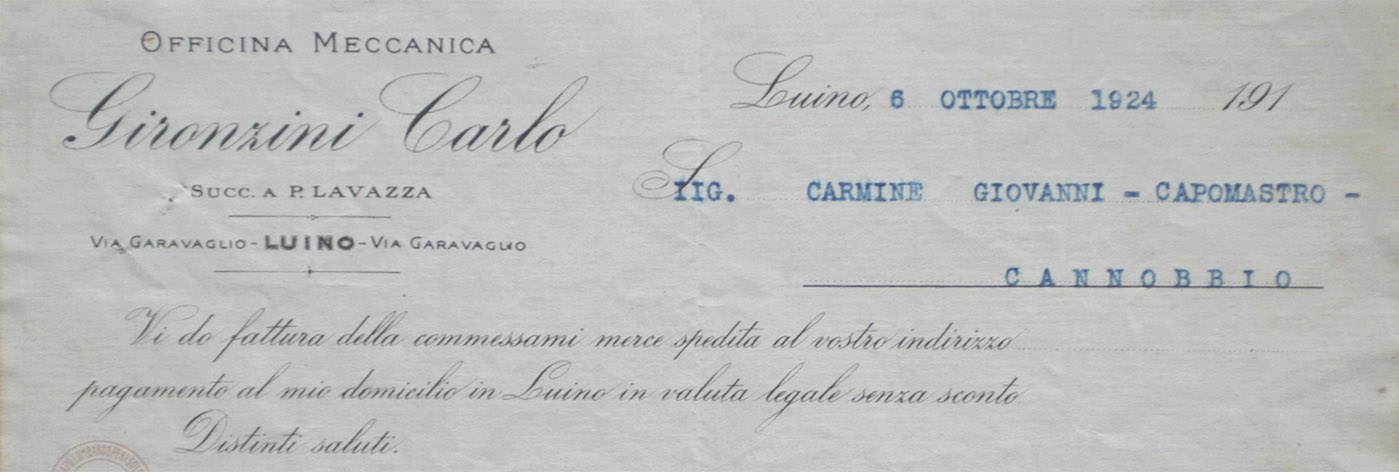 OFFICINA MECCANICA
Gironzini Carlo
SUCC. A P. LAVAZZA
VIA GARAVAGLIO - LUINO - VIA GARAVAGLIO
Luino, 6 OTTOBRE 1924 191
SIIG. CARMINE GIOVANNI - CAPOMASTRO -
CANNOBBIO
Vi do fattura della commessami merce spedita al vostro indirizzo
pagamento al mio domicilio in Luino in valuta legale senza sconto
Distinti saluti.